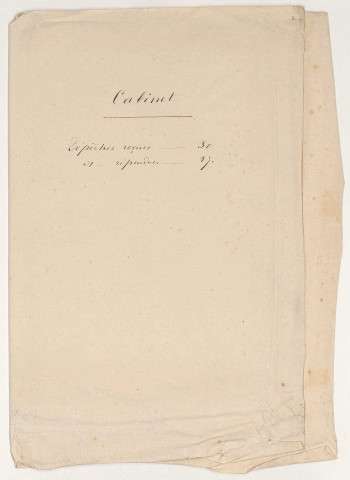 Cabinet
Dépêches reçues —— 30
répondues ——